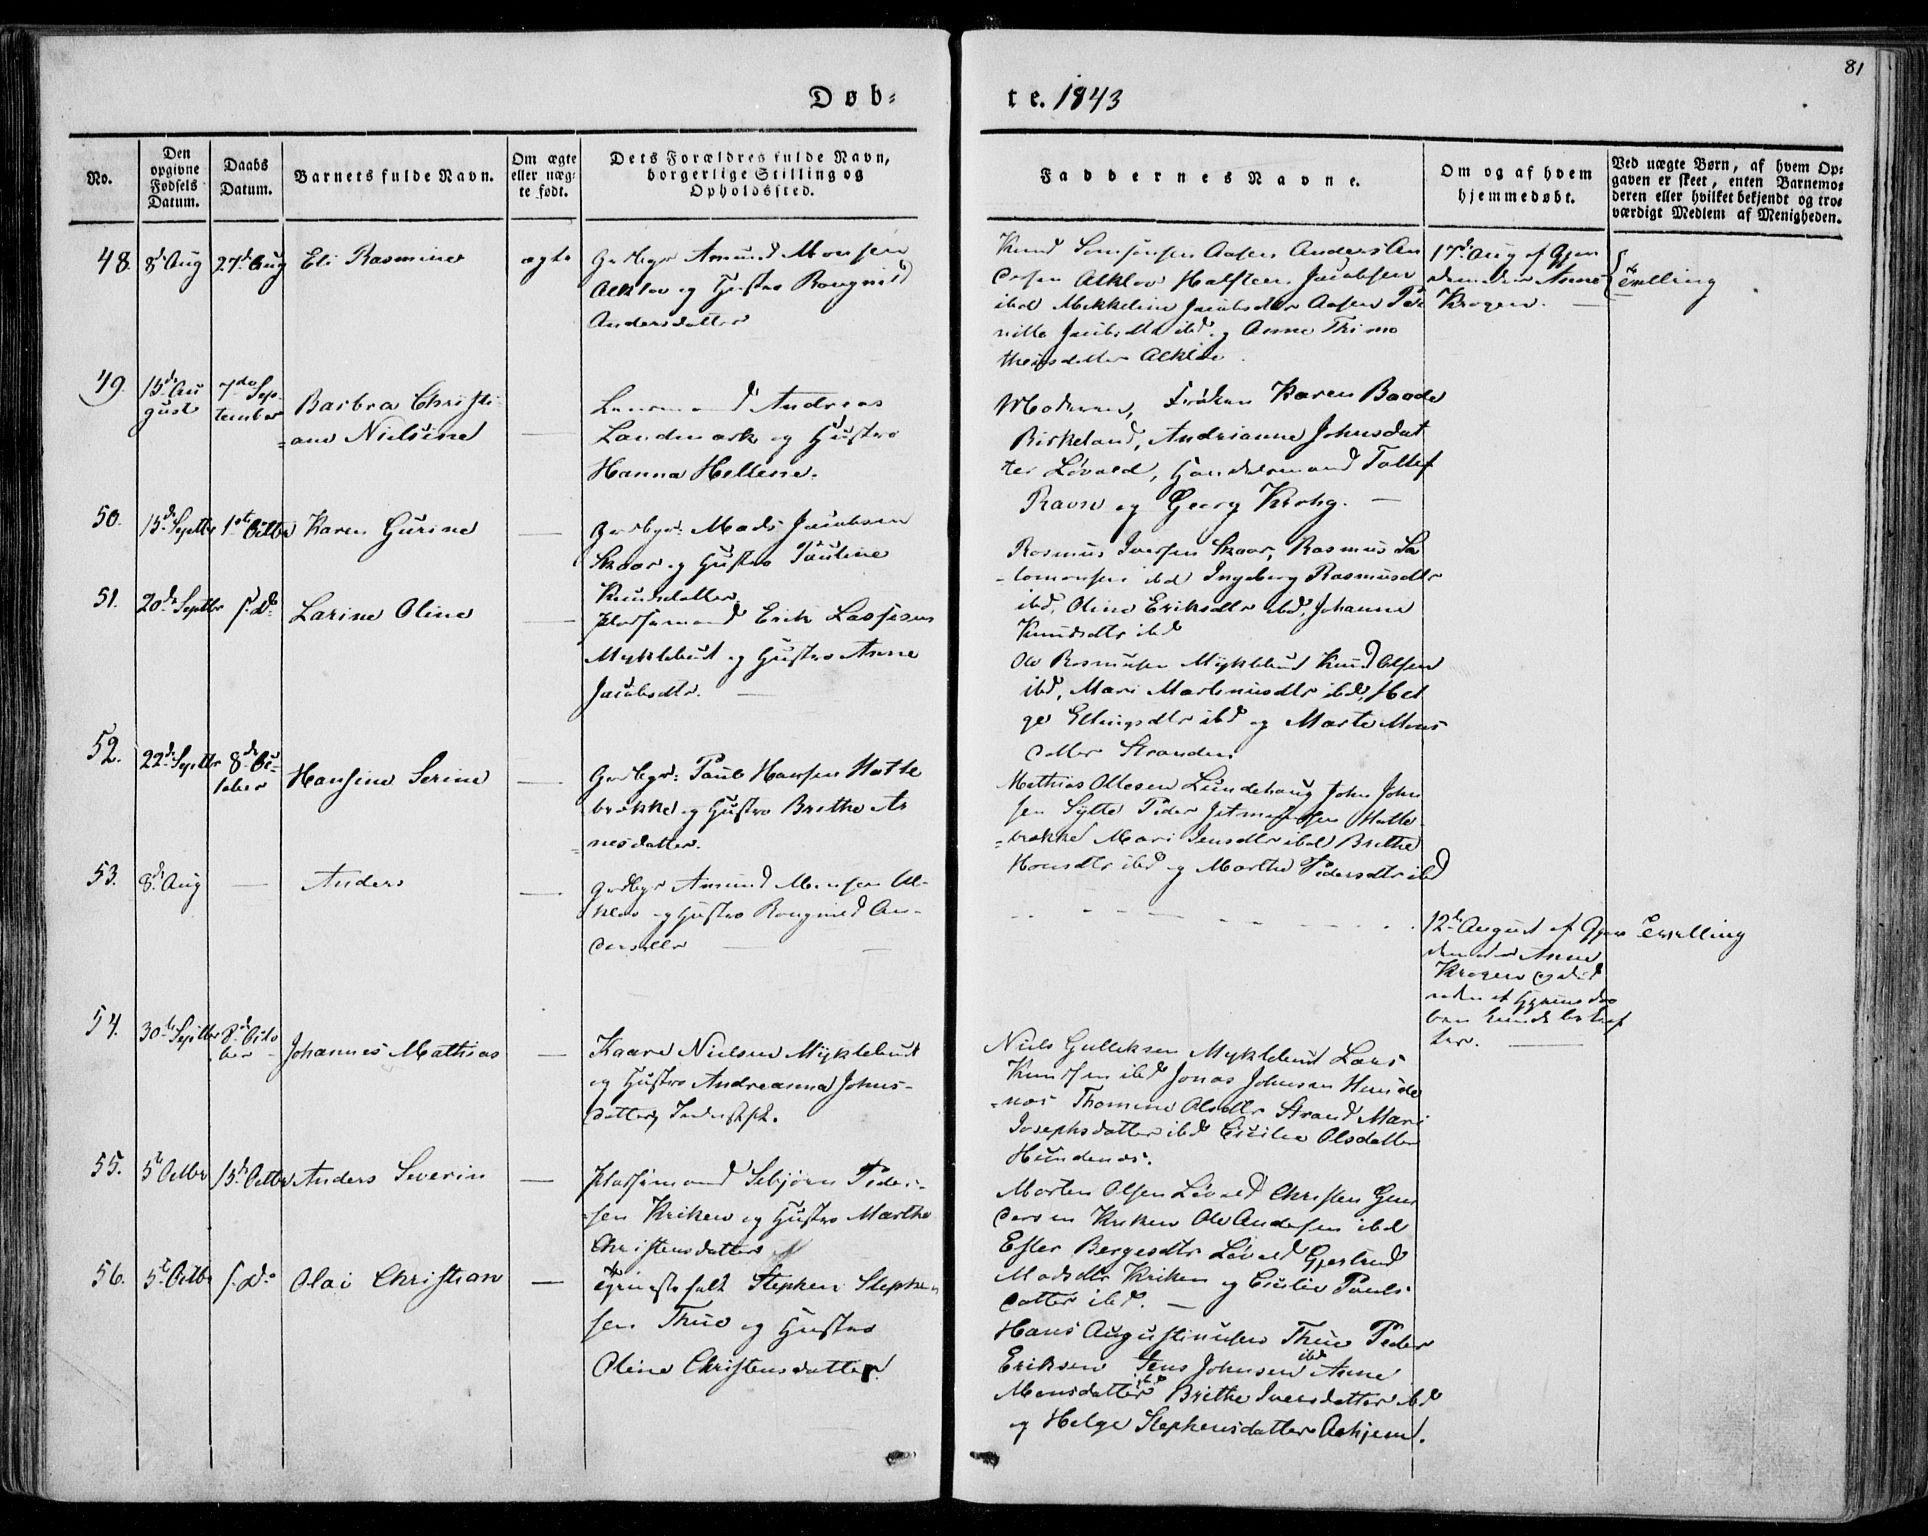 81
Døb-
te. 1843
No.
Den
opgivne
Fødsels
Datum.
Daabs
Datum.
Barnets fulde Navn.
Om ægte
eller uæg-
te født.
Dets Forældres fulde Navn,
borgerlige Stilling og
Opholdssted.
Faddernes Navne.
Om og af hvem
hjemmedøbt.
Ved uægte Børn, af hvem Op-
gaven er skeet, enten Barnemo-
deren eller hvilket bekjendt og tro-
værdigt Medlem af Menigheden.
48.
8de Aug
27de Aug
Eli Rasmine
ægte
Gdbgr Amund Monsen
Alklov og Hustro Rangnild
Andersdatter
Knud Aasen Anders An
dersen Alklov Halsteen Jacobsen
ibid Mikkeline Jacobsdtr Aasen Per
nille Jacobsdtr ibd og Anne Thimo
theusdatter Alklov.
17de Aug af Gjor
demoder Anne
Krogen. —
Tvelling
49.
15de Au
gust
7de Sep-
tember
Barbra Christi-
ane Nielsine
—
Lensmand Andreas
Landmark og Hustro
Hanna Hellene.
Moderen, Frøken Karen Baade
Birkeland, Andrianne Johnsdat
ter Løvold, Handelsmand Tollef
Ravn og Georg Krohg. —
50.
15de Septbr
1ste Octbr
Karen Gurine
—
Gdbgr: Mads Jacobsen
Skaar og Hustro Pauline
Knudsdatter
Rasmus Iversen Skaar, Rasmus Sa
lomonsen ibd Ingeborg Rasmusdtr
ibd, Oline Eriksdtr ibd, Johanne
Knudsdtr ibd
51.
20de Septbr
s. d.
Larine Oline
—
Pladsmand Erik Lassesen
Myklebust og Hustro Anne
Jacobsdtr. —
Ole Rasmusen Myklebust Knud Olsen
ibd, Mari Martinusdtr ibd, Hel
ge Ellingsdtr ibd og Marte Mons
datter Stranden
52.
22de Septbr
8de Oc-
tober
Hansine Serine
—
Gdbgr: Paul Hansen Hatte
brække og Hustro Brithe Ar
nesdatter.
Mathias Olsen Lundehaug John John
sen Sylte Peder Hatle
brække Mari Jensdtr ibd Brithe
Hansdtr ibd og Marthe Pedersdtr ibd
53.
8de Aug
—
Anders
—
Gdbgr Amund Monsen Al-
klov og Hustro Rangnild An-
dersdtr —
12te August af Gjor
demoder Anne
Krogen og død
inden at Hjemmedaa
ben kunde bekræf
tes. —
Tvelling
54.
30te Septbr
8de Octo
ber
Johannes Mathias
—
Kaare Nielsen Myklebust
og Hustro Andreanna Johns-
datter, Inderst
Niels Gulliksen Myklebust Lars
Knudsen ibd Jonas Johnsen Hunde
næs Thomine Olsdtr Strand Mari
Josephsdatter ibd Cicilie Olsdatter
Hundenæs.
55.
5te Octbr
15de Octbr
Anders Severin
—
Pladsmand Sebjørn Peder-
sen Kriken og Hustro Marthe
Christensdatter
Morten Olsen Løvold Christen Gun
dersen Kriken Ole Andersen ibd
Ester Bergesdtr Løvold Gjertrud
Madsdtr Kriken og Cicilie Pauls-
datter ibd. —
56.
5te Octbr
s. d.
Olai Christian
—
Tjenestefolk Stephen Stephen
sen Thue og Hustro
Oline Christensdatter
Hans Augustinusen Thue Peder
Eriksen ibd Jens Johnsen Anne
Monsdatter ibd Brithe Iversdatter ibd
og Helge Stephensdatter Aahjem.